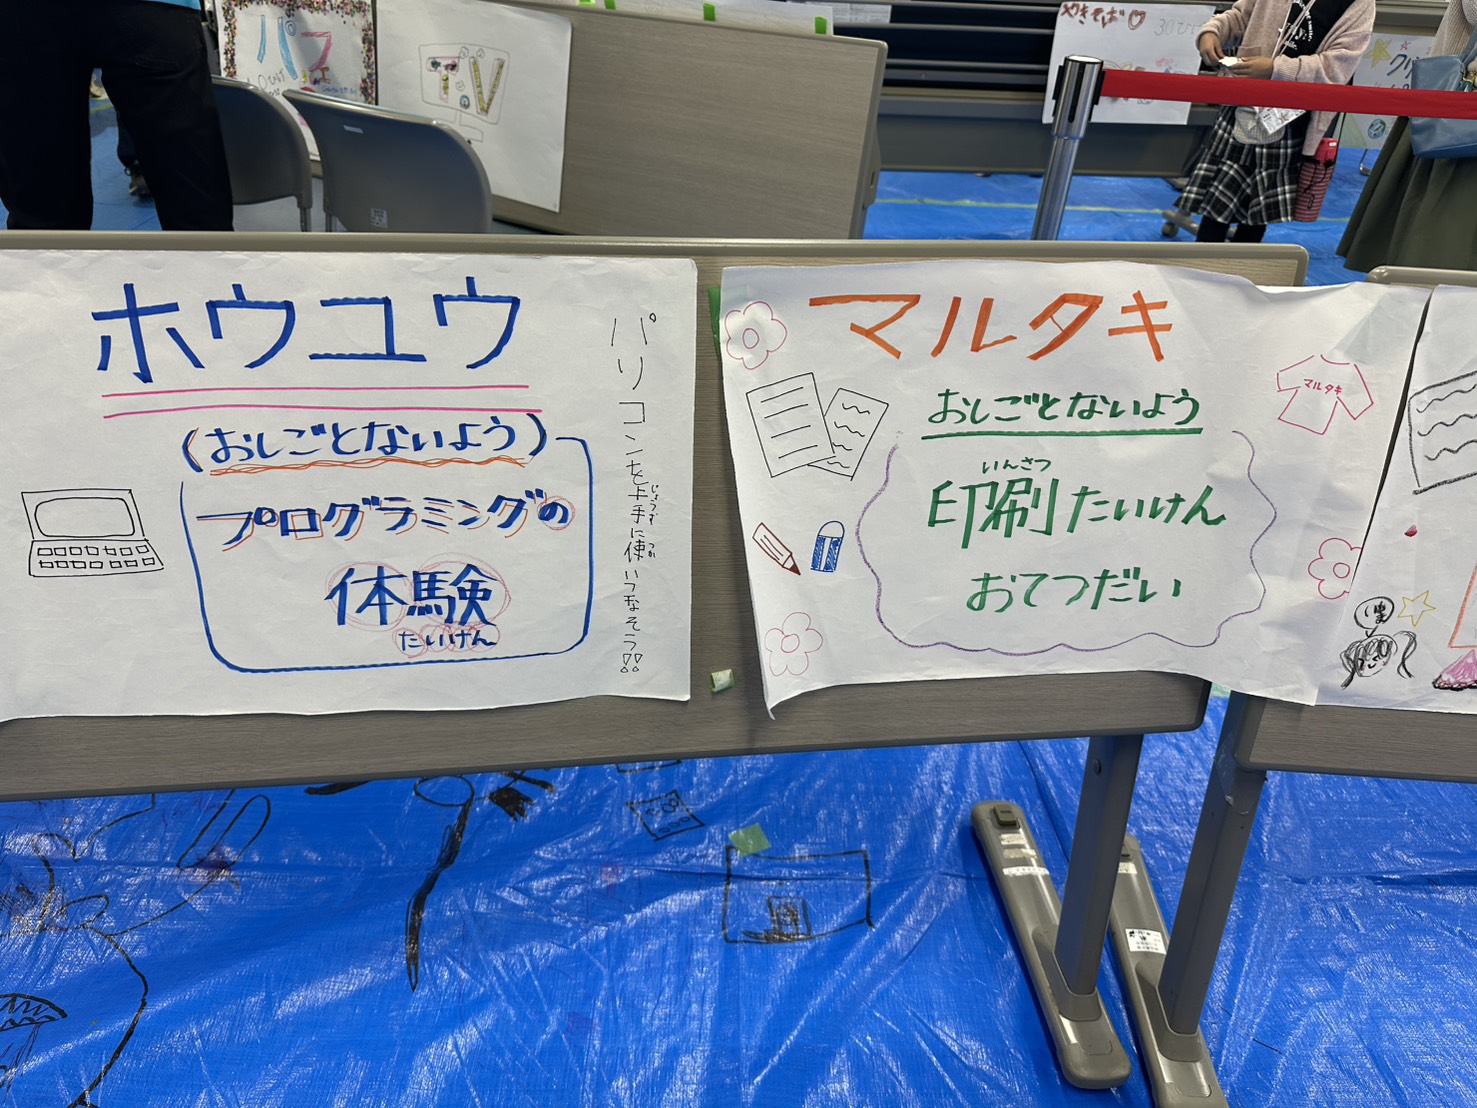 パフ
TV
やきそば♡
30ひ
ホウユウ
(おしごとないよう)
プログラミングの
体験
たいけん
パソコンを上手に使いつなそう!!
じょうず
つか
マルタキ
マルタキ
おしごとないよう
いんさつ
印刷たいけん
おてつだい